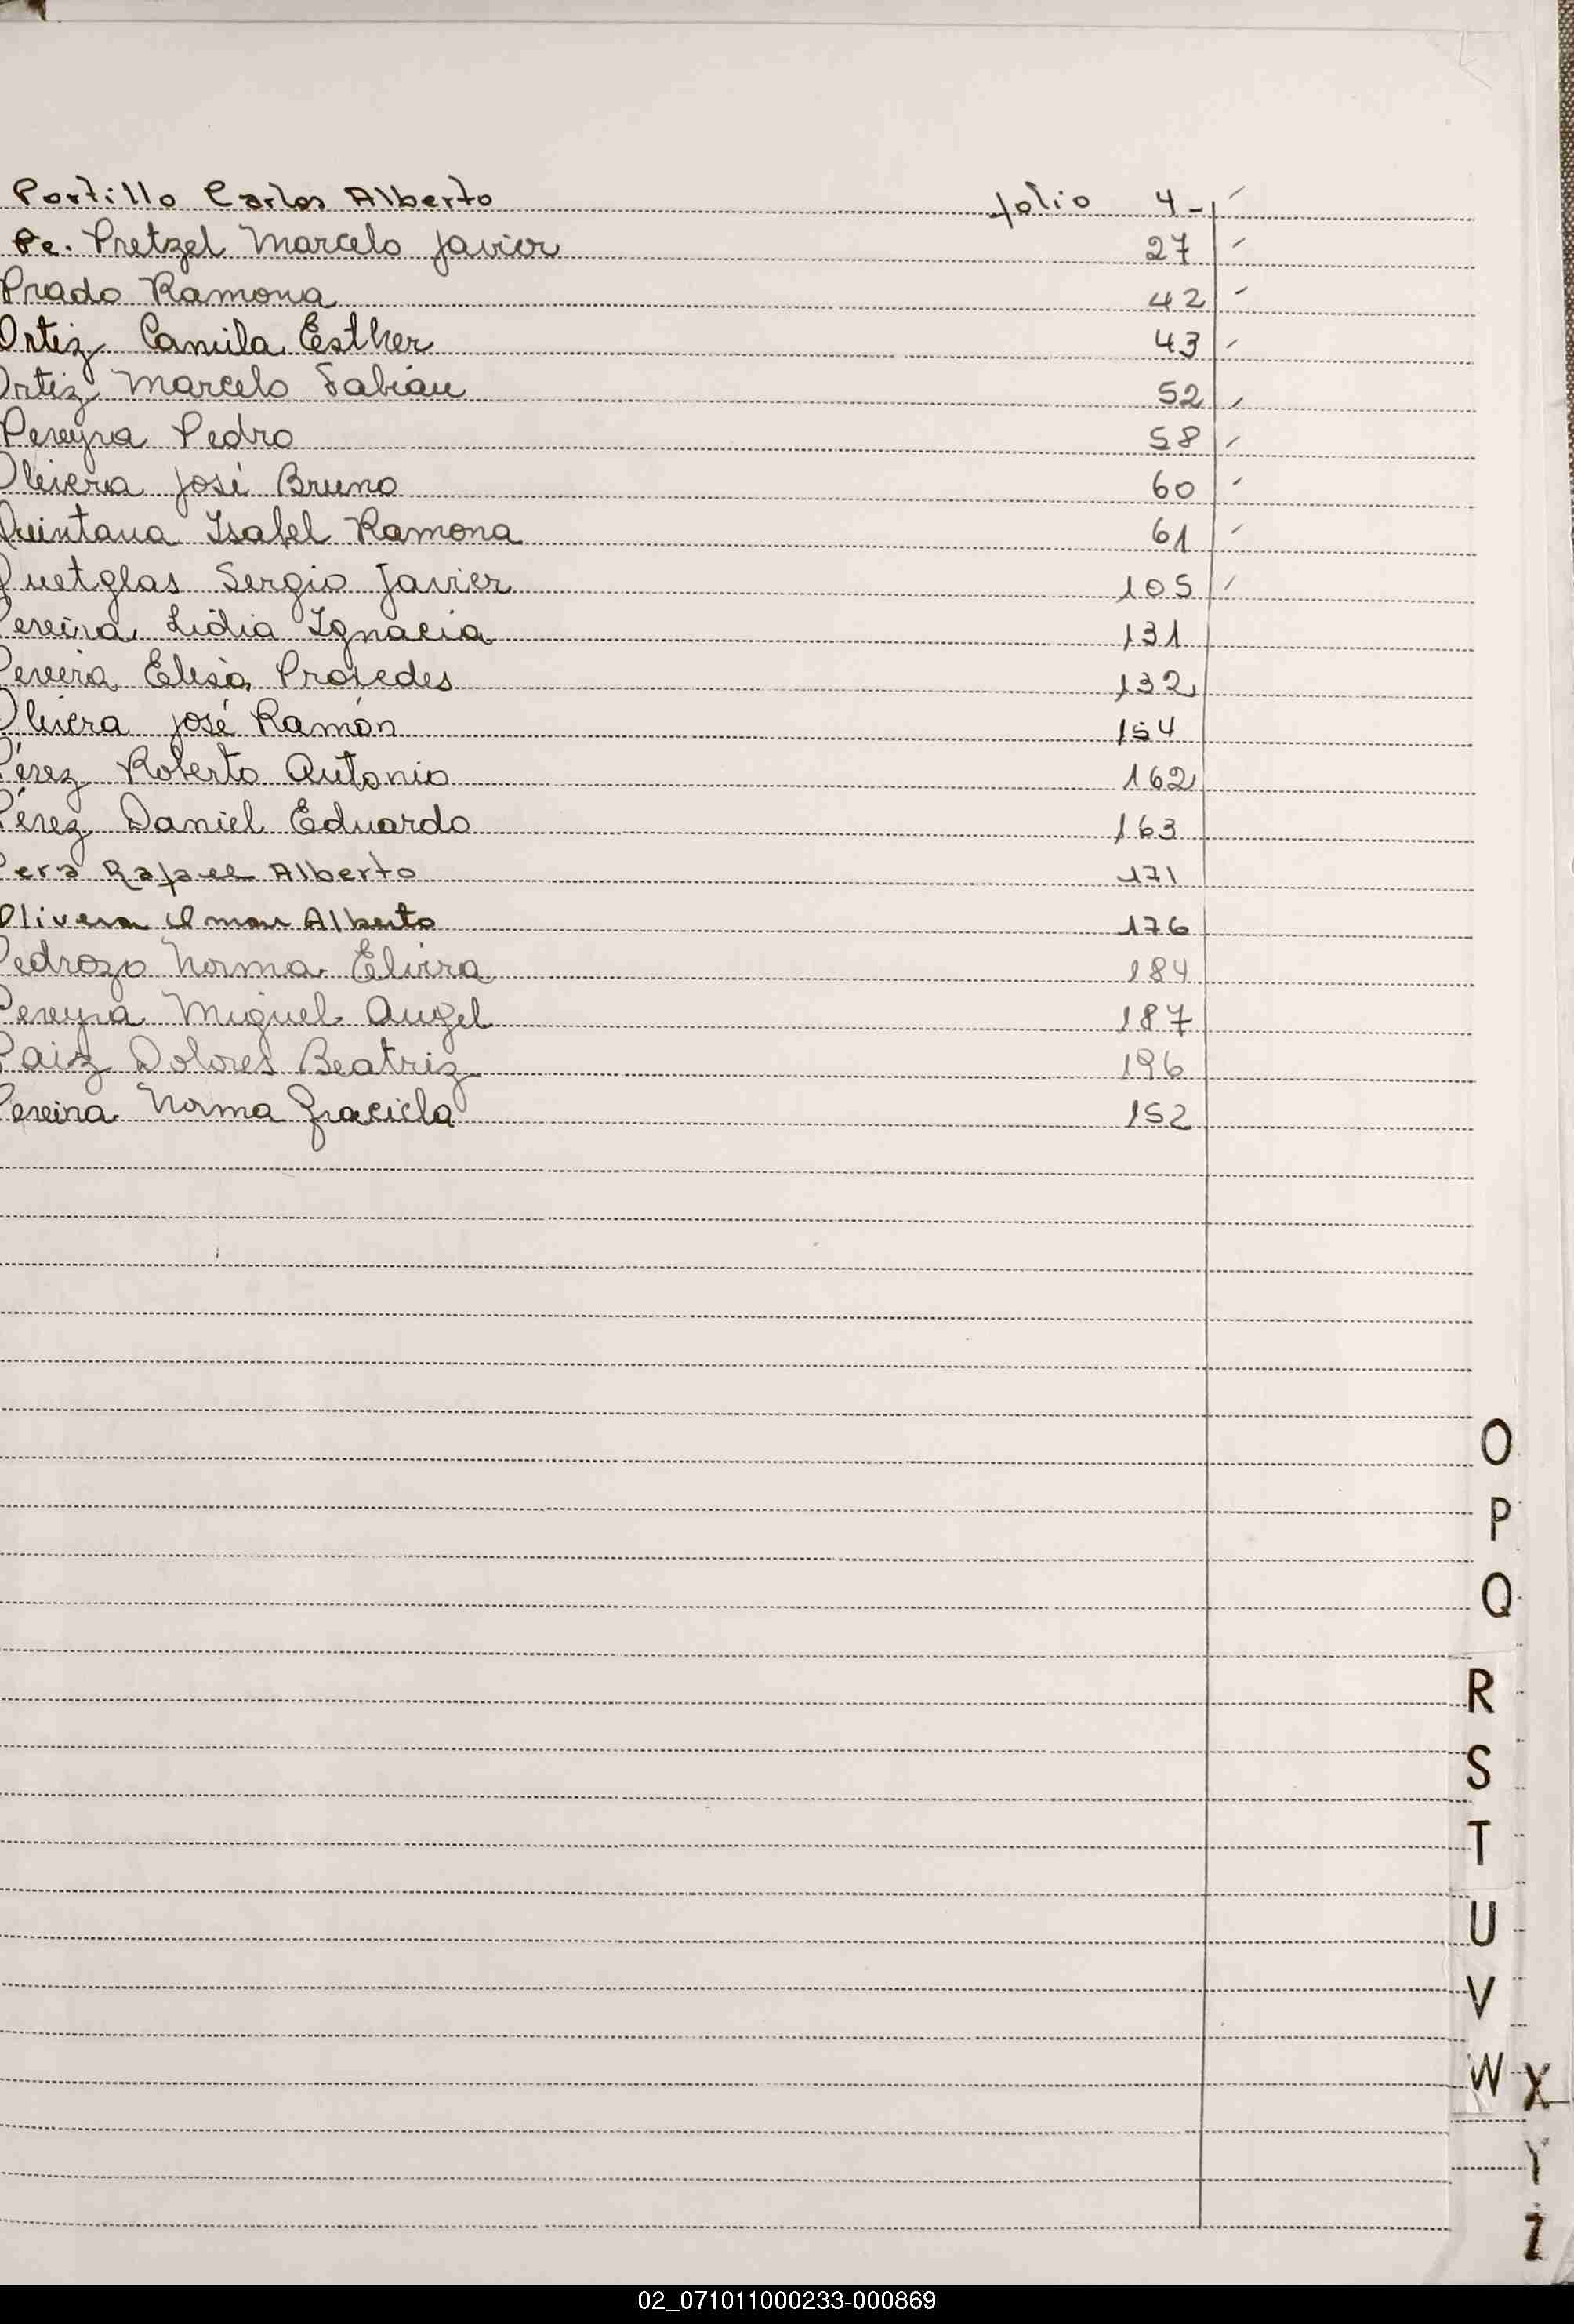 Portillo Carlos Alberto folio 4-
Pe. Pretzel Marcelo Javier 27
Prado Ramona 42
Ortiz Camila Esther 43
Ortiz Marcelo Fabián 52
Pereyra Pedro 58
Oliveira José Bruno 60
Quintana Isabel Ramona 61
Quetglas Sergio Javier 105
Pereira Lidia Ignacia 131
Pereira Elisa 132
Olivera José Ramón 154
Pérez Roberto Antonio 162
Pérez Daniel Eduardo 163
Pera Rafael Alberto 171
Olivera Omar Alberto 176
Pedrozo Norma Elvira 184
Pereyra Miguel Angel 187
Paiz Dolores Beatriz 196
Pereira Norma Graciela 152
O
P
Q
R
S
T
U
V
W X
Y
Z
02_071011000233-000869